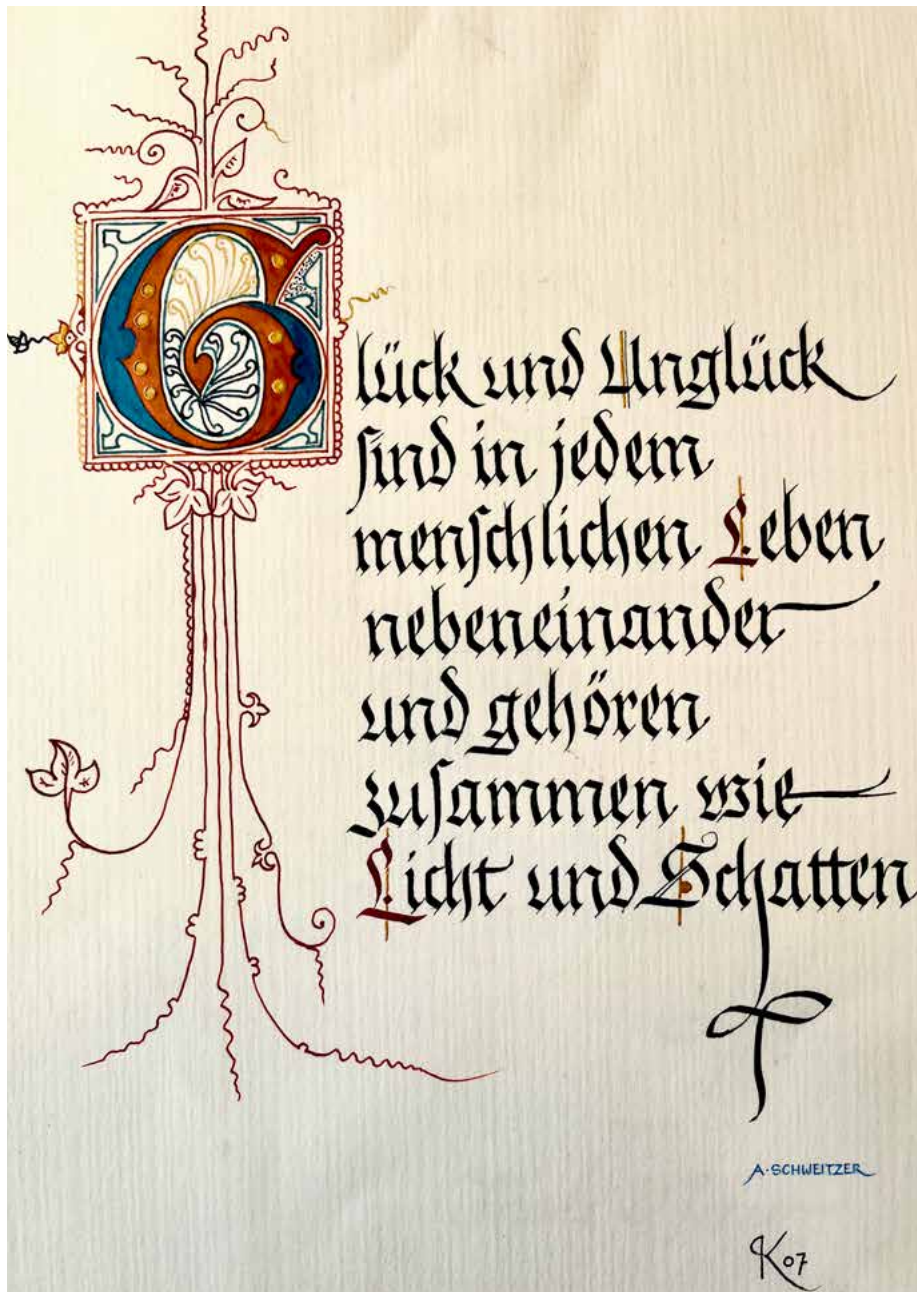 Glück und Unglück
sind in jedem
menschlichen Leben
nebeneinander
und gehören
zusammen wie
Licht und Schatten
A·SCHWEITZER
K07